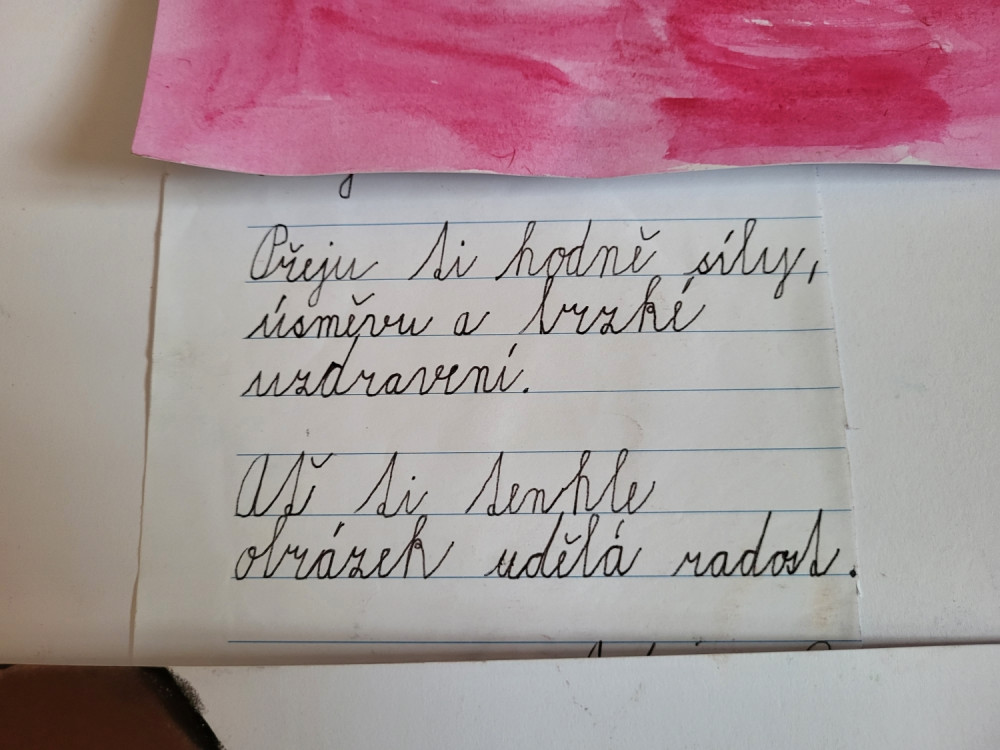 Přeju ti hodně síly,
úsměvu a brzké
uzdravení.
Ať ti tenhle
obrázek udělá radost.